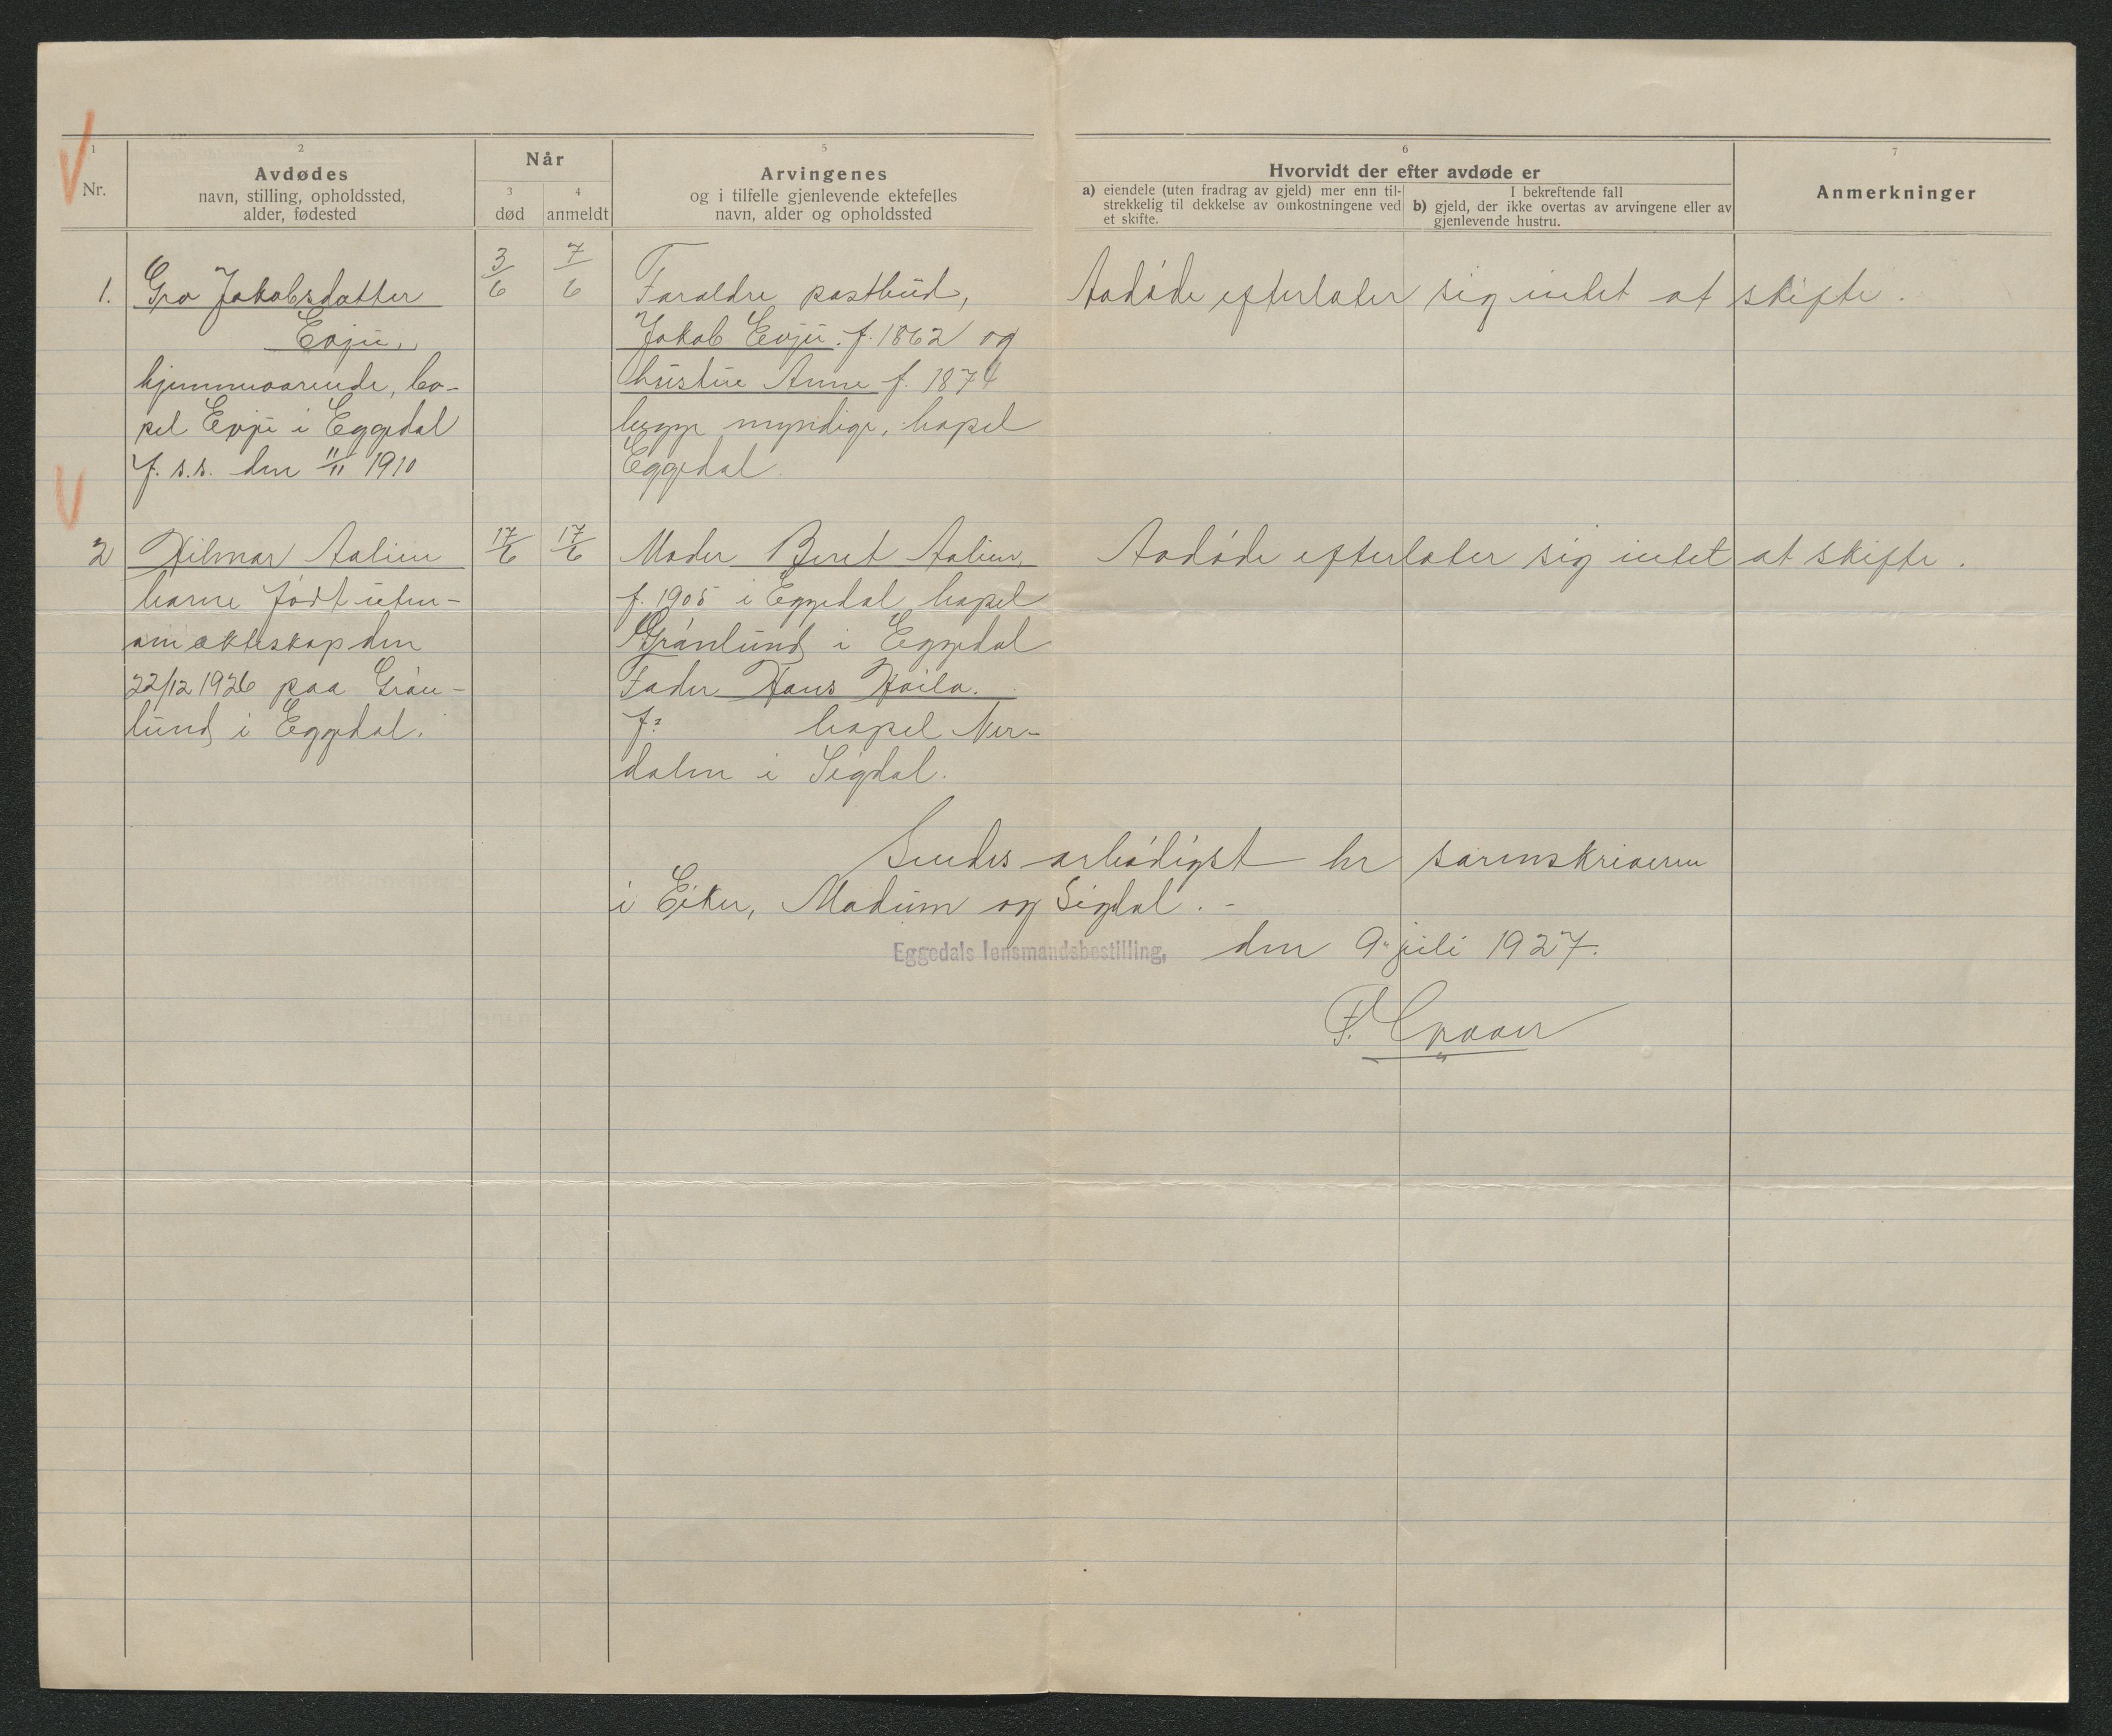 1
2
Avdødes
navn, stilling, opholdssted,
alder, fødested
Nr.
Når
3
død
4
anmeldt
5
Arvingenes
og i tilfelle gjenlevende ektefelles
navn, alder og opholdssted
6
Hvorvidt der efter avdøde er
a) eiendele (uten fradrag av gjeld) mer enn til-
strekkelig til dekkelse av omkostningene ved
et skifte.
I bekreftende fall
b) gjeld, der ikke overtas av arvingene eller av
gjenlevende hustru.
7
Anmerkninger
1.
Gro Jakobsdatter
Evju,
hjemmeværende, bo-
pel Evju i Eggedal
f. s.s. den 11/11 1910
3/6
7/6
Foræidre postbud,
Jakob Evju. f. 1862 og
hustru Anne f. 1874
begge myndige, bopel
Eggedal.
Avdøde efterlater sig intet at skifte.
2
Hilmar Aalien
barne født uten-
om ekteskap den
22/12 1926 paa Grøn-
lund i Eggedal.
17/6
17/6
Moder Beret Aalien,
f. 1905 i Eggedal bopel
Grønlund i Eggedal
Fader Hans
f: bopel Ner-
dalen i Sigdal.
Avdøde efterlater sig intet at skifte.
Sendes ærbødigst hr sorenskriveren
i Eiker, Modum og Sigdal. -
Eggedals lensmandsbestilling, den 9 juli 1927.